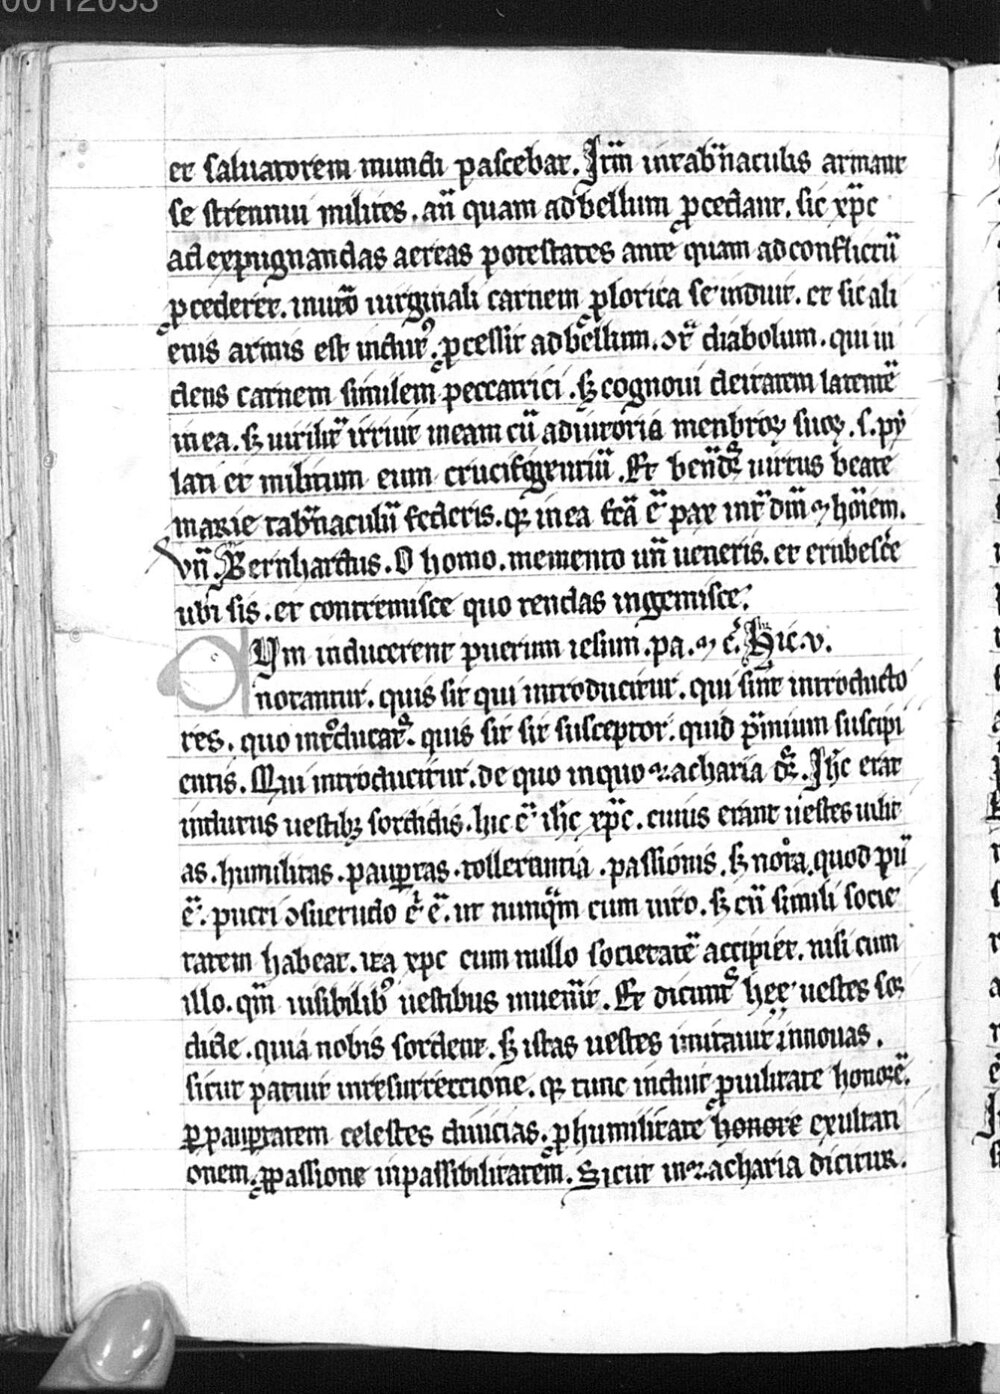 00112053
et saluatorem mundi pascebat. Itm̄ intab̄naculis armant
se strennui milites. an̄ quam adbellum ꝓcedant. sic xp̄c
ad expugnandas aereas potestates ante quam adconflictū
ꝓcederet. inutō uirginali carnem ꝓlorica se induit. et sic ali
enis armis est indutꝰ. ꝓcessit adbellum. ↄt̄ diabolum. qui ui
dens carnem similem peccatrici. sꝫ cognoui deitatem latentē
in ea. sꝫ uirilit̄ irruit ineam cū adiutoria menbroꝝ suoꝝ. s. py
lati et militum eum crucifigentiū. Et ben̄ dr̄ uirtus beate
marie tab̄naculū federis. qꝛ in ea fc̄a ē pax int̄ dm̄ ⁊ hōiem.
vn̄ Bernhardus. O homo. memento un̄ ueneris. et erubesce
ubi sis. et contremisce quo tendas ingemisce.
Dvm inducerent puerum iesum. pa. ⁊ c̄. Hic. v.
notantur. quis sit qui introducitur. qui sint introducto
res. quo intͦducat̄. quis sit sit susceptor. quid p̄mium suscipi
entis. Qui introducitur. de quo inquo zacharia dr̄. Ihc̄ erat
indutus uestibꝫ sordidis. hic ē ihc̄ xp̄c. cuius erant uestes uilit
as. humilitas. paup̱tas. tollerantia. passionis. sꝫ nota. quod pū
ē. pueri ↄsuetudo ē. ut nunqͣm cum uiro. sꝫ cū simili socie
tatem habeat. ita xpc cum nullo societatē accipiet. nisi cum
illo. qm̄ uisibilibꝰ uestibus inuen̄it. Et dicunt̄ hee uestes sor
dide. quia nobis sordent. sꝫ istas uestes mutauit innouas.
sicut patuit inresurrectione. qꝛ tunc induit ꝓuilitate honorē.
ꝓpaup̱tatem celestes diuicias. ꝓhumilitate honore exultati
onem. ꝓpassione inpassibilitatem. Sicut inzacharia dicitur.